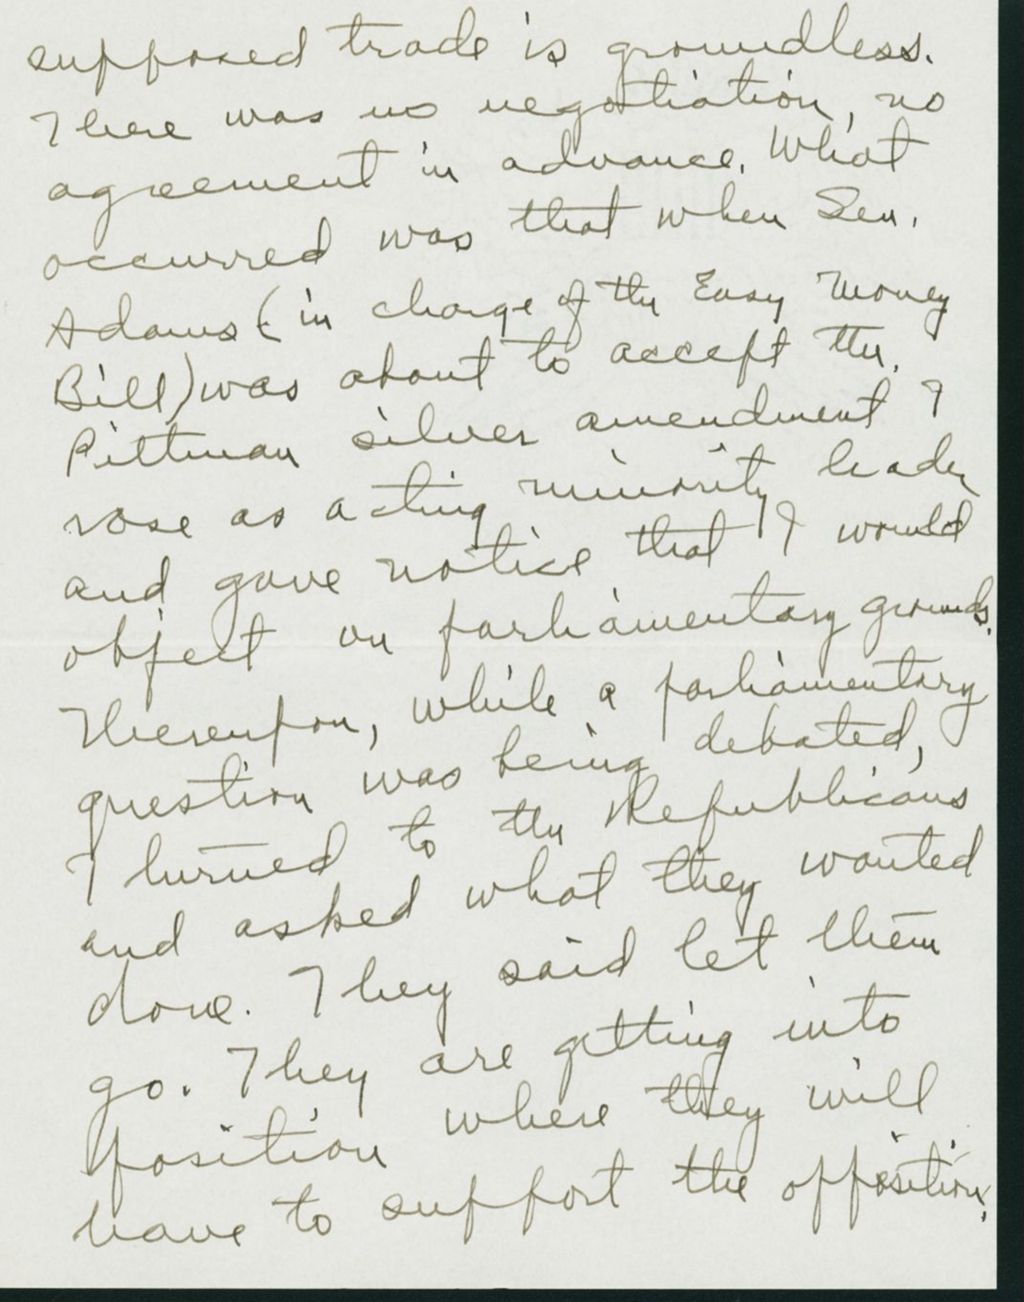 supposed trade is groundless.
There was no negotiation, no
agreement in advance. What
occurred was that when Sen.
Adams (in charge of the Easy Money
Bill) was about to accept the
Pittman silver amendment I
rose as acting minority leader
and gave notice that I would
object on parliamentary grounds.
Thereupon, while a parliamentary
question was being debated,
I turned to the Republicans
and asked what they wanted
done. They said let them
go. They are getting into
position where they will
have to support the opposition.